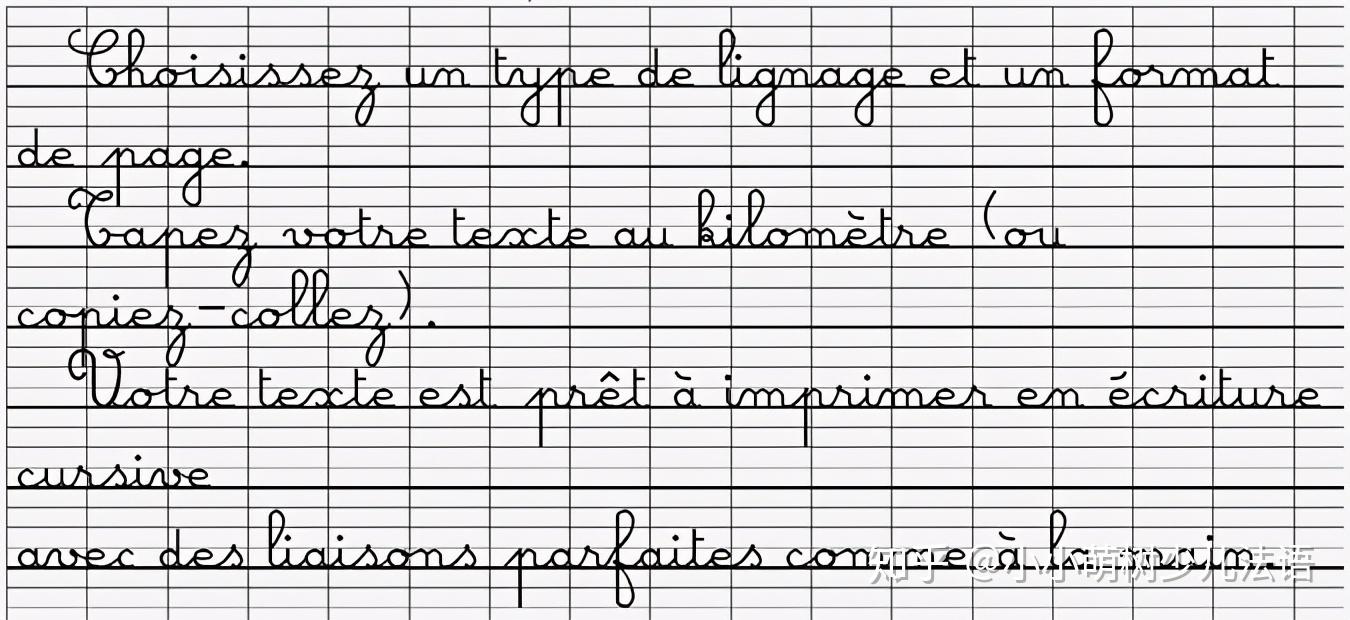 Choisissez un type de lignage et un format
de page.
Tapez votre texte au kilomètre (ou
copiez-collez).
Votre texte est prêt à imprimer en écriture
cursive
avec des liaisons parfaites comme à la main.
知乎 @小小萌树少儿法语